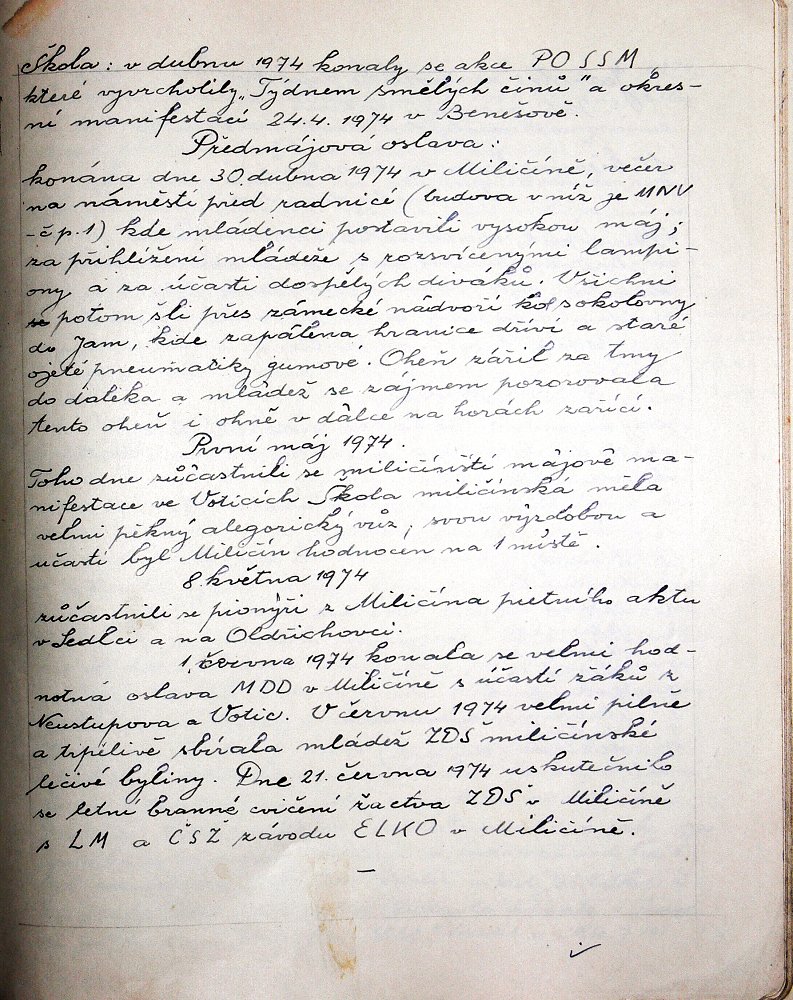 Škola: v dubnu 1974 konaly se akce PO SSM
které vyvrcholily „Týdnem smělých činů" a okres-
ní manifestací 24.4. 1974 v Benešově.
Předmájová oslava:
konána dne 30.dubna 1974 v Miličíně, večer
na náměstí před radnicí (budova v níž je MNV
- č p. 1) kde mládenci postavili vysokou máj;
za přihlížení mládeže s rozsvícenými lampi-
ony a za účasti dospělých diváků. Všichni
potom šli přes zámecké nádvoří kol sokolovny
do Jam, kde zapálena hranice dříví a staré
ojeté pneumatiky gumové. Oheň zářil za tmy
do daleka a mládež se zájmem pozorovala
tento oheň i ohně v dálce na horách zářící.
První máj 1974.
Toho dne zúčastnili se miličínští májové ma-
nifestace ve Voticích Škola miličínská měla
velmi pěkný alegorický vůz; svou výzdobou a
účastí byl Miličín hodnocen na 1 místě.
8. května 1974
zúčastnili se pionýři z Miličína pietního aktu
v Sedlci a na Oldřichovci.
1. června 1974 konala se velmi hod-
notná oslava MDD v Miličíně s účastí žáků z
Neustupova a Votic. V červnu 1974 velmi pilně
a trpělivě sbírala mládež ZDŠ miličínské
léčivé byliny. Dne 21. června 1974 uskutečnilo
se letní branné cvičení žactva ZDŠ v Miličíně
s LM a ČSŽ závodu ELKO v Miličíně.
—